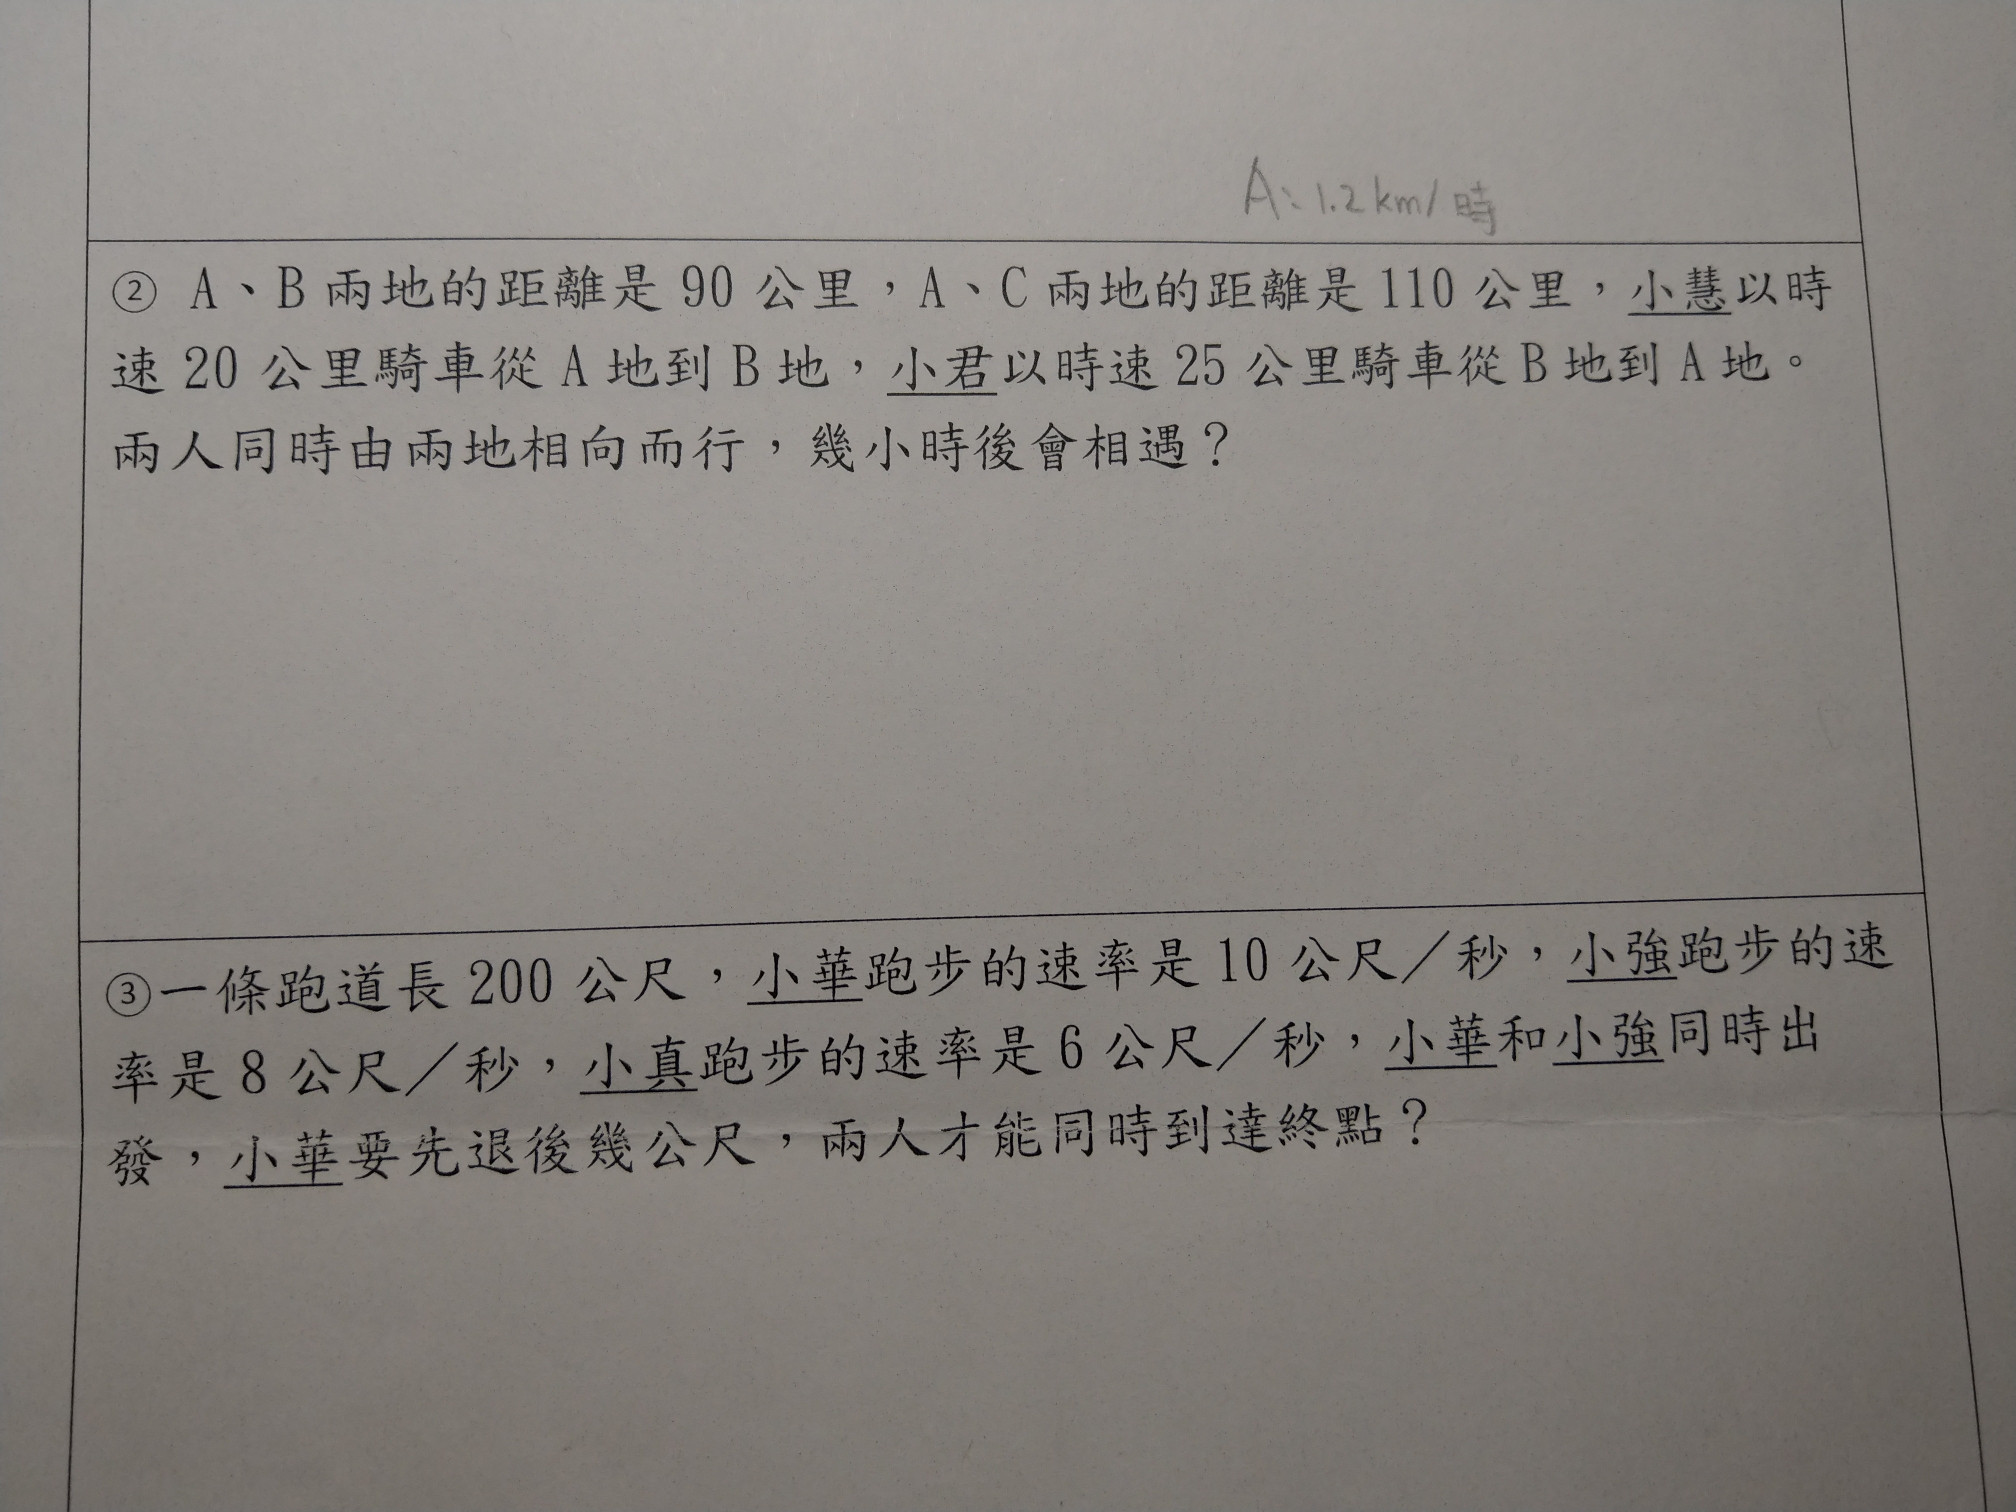 A：1.2km/時
② A、B兩地的距離是90公里，A、C兩地的距離是110公里，小慧以時
速20公里騎車從A地到B地，小君以時速25公里騎車從B地到A地。
兩人同時由兩地相向而行，幾小時後會相遇？
③一條跑道長200公尺，小華跑步的速率是10公尺／秒，小強跑步的速
率是8公尺／秒，小真跑步的速率是6公尺／秒，小華和小強同時出
發，小華要先退後幾公尺，兩人才能同時到達終點？